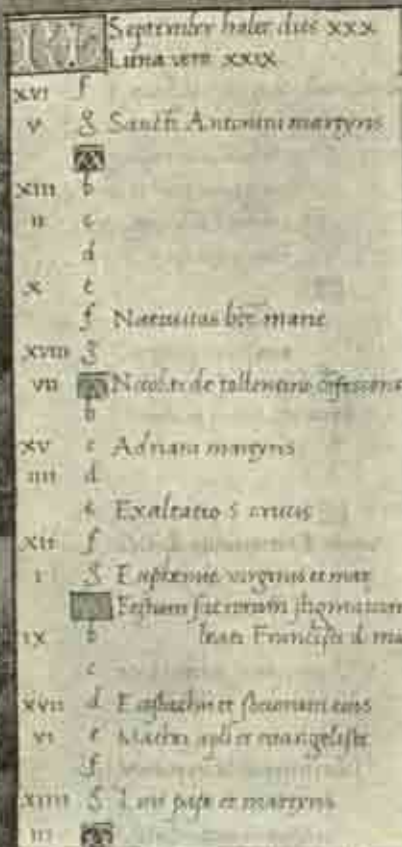 KL September habet dies xxx
Luna vero xxix
xvi f
v g Sancti Antonini martyris
A
xiii b
ii c
d
x e
f Natiuitas bte marie
xviii g
vii A Nicolai de tollentino confessoris
b
xv c Adriani martyris
iiii d
e Exaltatio s crucis
xii f
i g Eufemie virginis et mar
Festum sacrorum stigmatum
ix b beati Francisci d ma
c
xvii d Eustachii et sociorum eius
vi e Mathei apli et euangeliste
f
xiiii g Lini pape et martyris
iii A